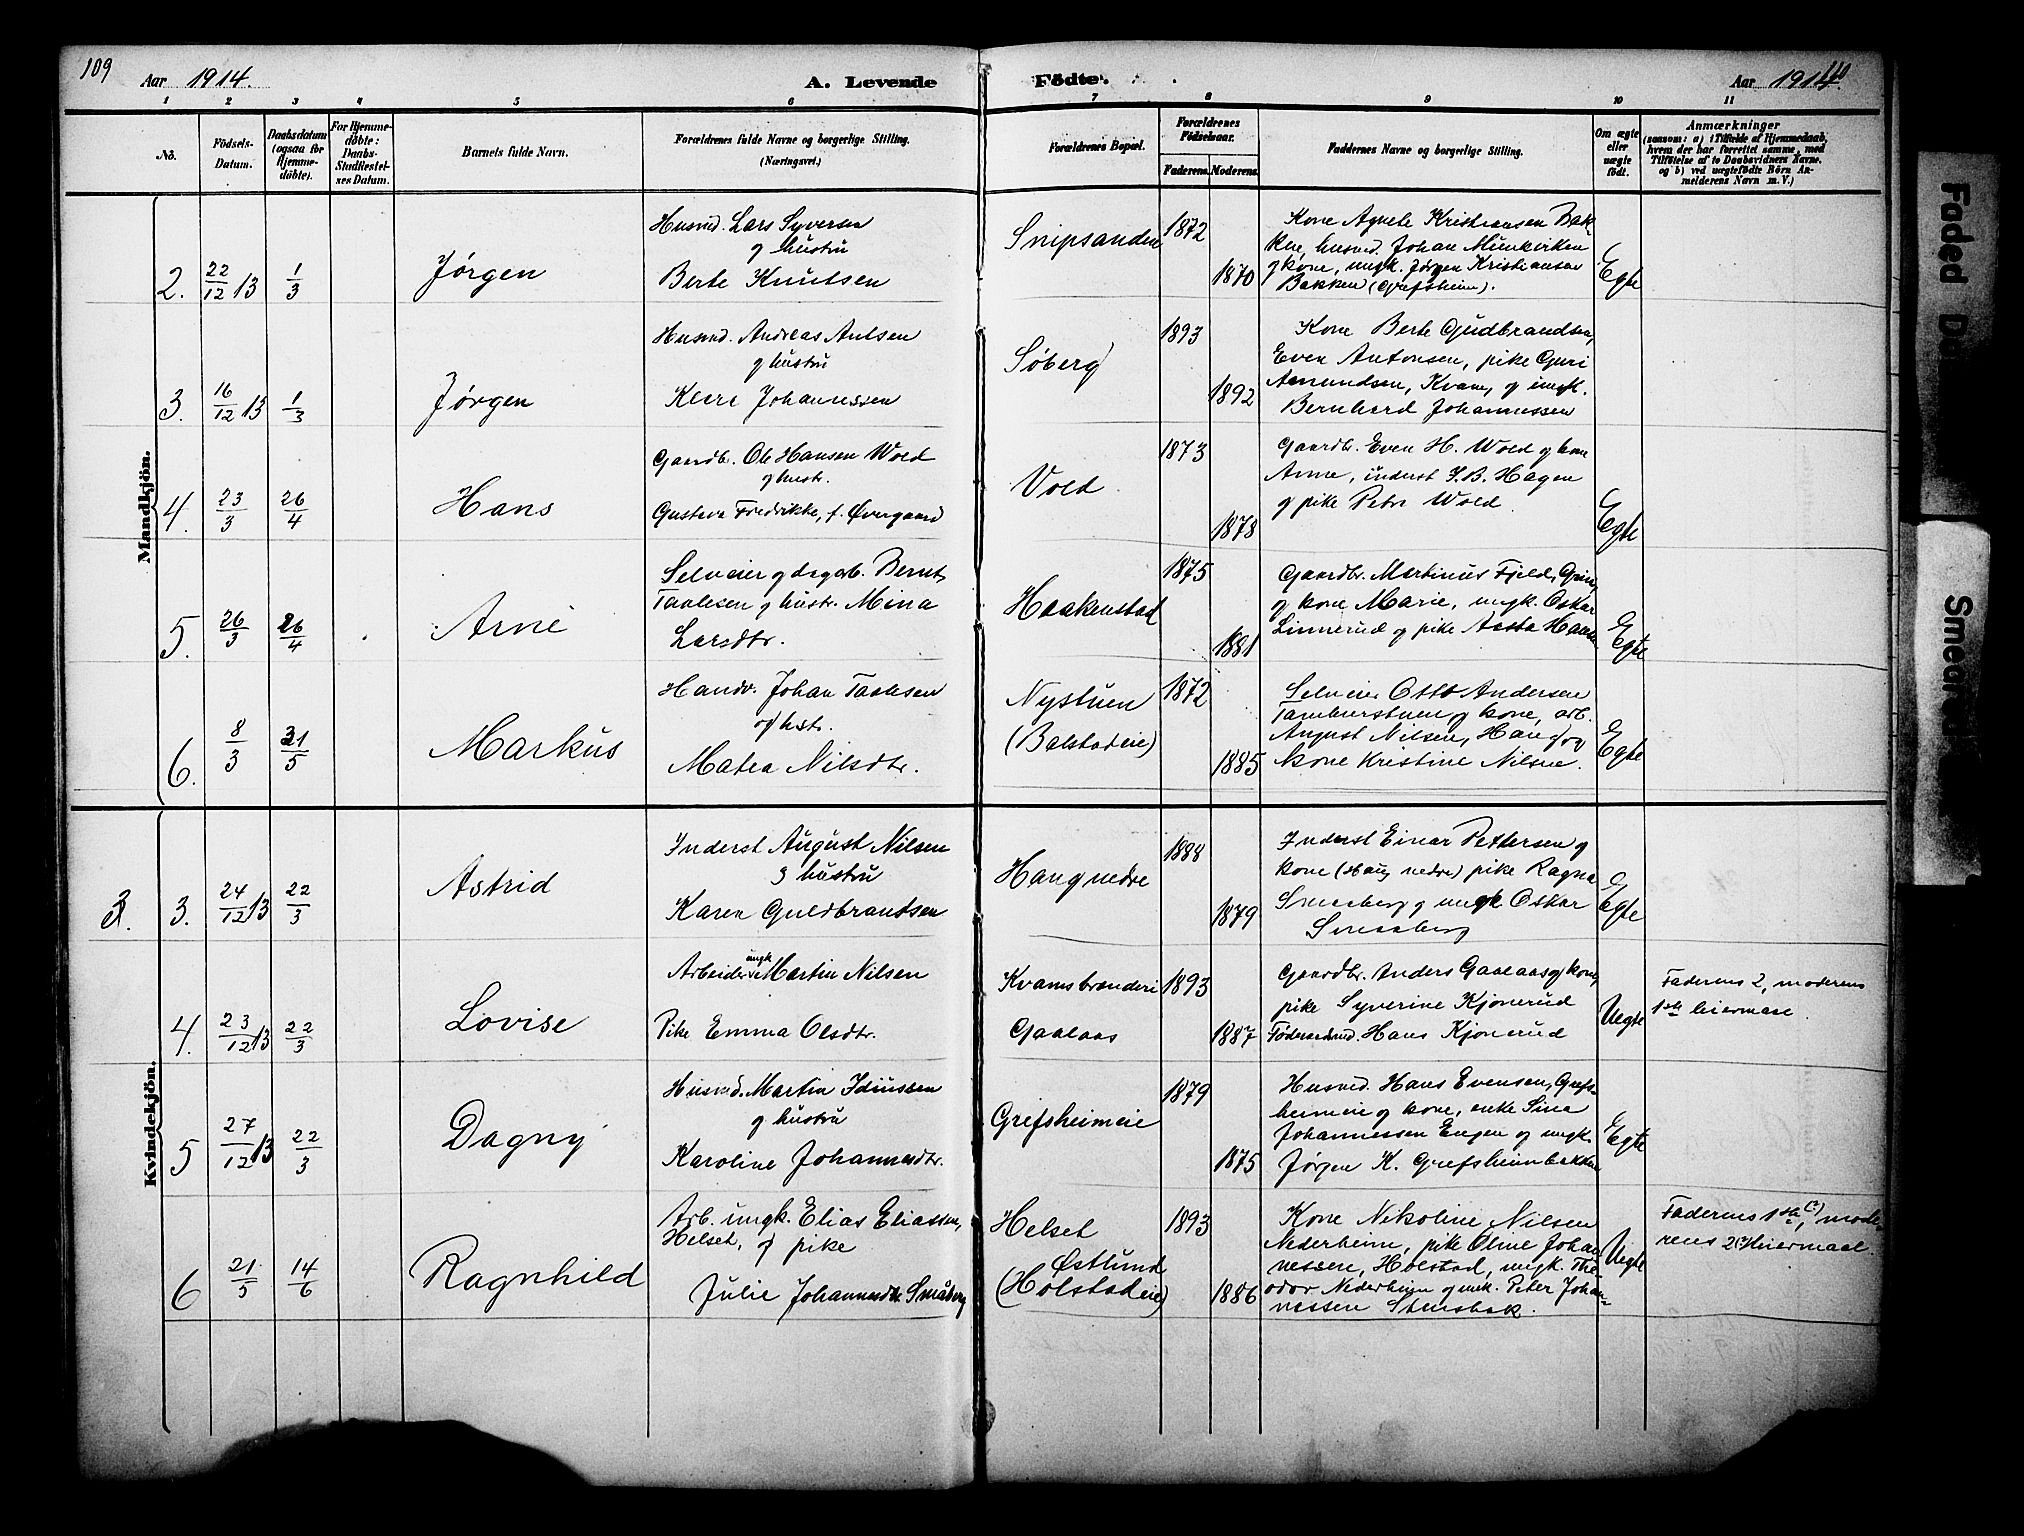 109
Aar 1914.
A. Levende Födte.
Aar 1914.
110
1 2 3 4 5 6 7 8 9 10 11
No.
Födsels-Datum.
Daabsdatum (ogsaa for Hjemme-döbte).
For Hjemme-döbte: Daabs-Stadfæstel-ses Datum.
Barnets fulde Navn.
Forældrenes fulde Navne og borgerlige Stilling.
(Næringsvei.)
Forældrenes Bopæl.
Forældrenes Födselsaar.
Faderens. Moderens.
Faddernes Navne og borgerlige Stilling.
Om ægte eller uægte födt.
Anmærkninger
(saasom: a) i Tilfælde af Hjemmedaab, hvem der har forrettet samme, med Tilföielse af to Daabsvidners Navne. og b) ved uægtefödte Börn An-melderens Navn m. V.)
Mandkjön.
2. 22/12 13 1/3 Jørgen
Husmd. Lars Syversen
og hustru
Berte Knutsen
Snipsanden 1872 1870
Kone Agnete Kristiansen Bak-
ken, husmd. Johan Munkvirken
og kone, ungk. Jørgen Kristiansen
Bakken (Grefsheim).
Egte
3. 16/12 13 1/3 Jørgen
Husmd. Andreas Antsen
og hustru
Klara Johannessen
Søberg 1893 1892
Kone Berte Gudbrandsen,
Even Antonsen, pike Guri
Amundsen, Kvam, og ungk.
Bernhard Johannessen
4. 23/3 26/4 Hans
Gaardb. Ole Hansen Wold
og hustr.
Gustava Fredrikke, f. Øvergaard
Vold 1873 1878
Gaardbr. Even H. Wold og kone
Anne, inderst J.B. Hagen
og pike Petra Wold.
Egte
5. 26/3 26/4 Arne
Selveier og dagarb. Bernt
Taalesen og hustr. Mina
Larsdtr.
Haakenstad 1875 1881
Gaardbr. Martinus Fjeld, Grim
og kone Marie, ungk. Oskar
Linnerud og pike Aasta
Egte
6. 8/3 21/5 Markus
Handv. Johan Taalesen
og hustr.
Matea Nilsdtr.
Nystuen
(Balstadeie) 1872 1885
Selveier Otto Andersen
Tamburstuen og kone, arb.
August Nilsen, Haug og
kone Kristine Nilsen.
Egte
Kvindekjön.
3. 3. 24/12 13 22/3 Astrid
Inderst August Nilsen
og hustru
Karen Guldbrandsen
Haug nedre 1888 1879
Inderst Einar Pettersen og
kone (Haug nedre) pike Ragna
Smeaberg og ungk Oskar
Smeaberg
Egte
4. 23/12 13 22/3 Lovise
Arbeider ungk Martin Nilsen
Pike Emma Olsdtr.
Kvamsbrænderi
Gaalaas 1893 1887
Gaardbr. Anders Gaalaas og kone,
pike Syverine Kjonerud
Föderaadsmd. Hans Kjonerud
Uegte
Faderens 2, moderens
1ste leiermaal.
5 27/12 13 22/3 Dagny
Husmd. Martin Idiussen
og hustru
Karoline Johannesdtr.
Grefsheimeie 1879 1875
Husmd. Hans Evensen, Grefs-
heimeie og kone, enke Sina
Johannessen Engen og ungk.
Jørgen K. Grefsheimbakken
Egte
6 21/5 14/6 Ragnhild
Arb. ungk. Elias Eliassen,
Helset, og pike
Julie Johannesdtr Småberg
Helset
Østlund
(Holstadeie) 1893 1886
Kone Nikoline Nilsen
Nederheim, pike Oline Johan-
nessen, Holstad, ungk. The-
odor Nederheim og ungk. Peter Johan-
nessen Stensbak.
Uegte
Faderens 1ste (?), mode-
rens 2(?) leiermaal.
Faded
Smeared